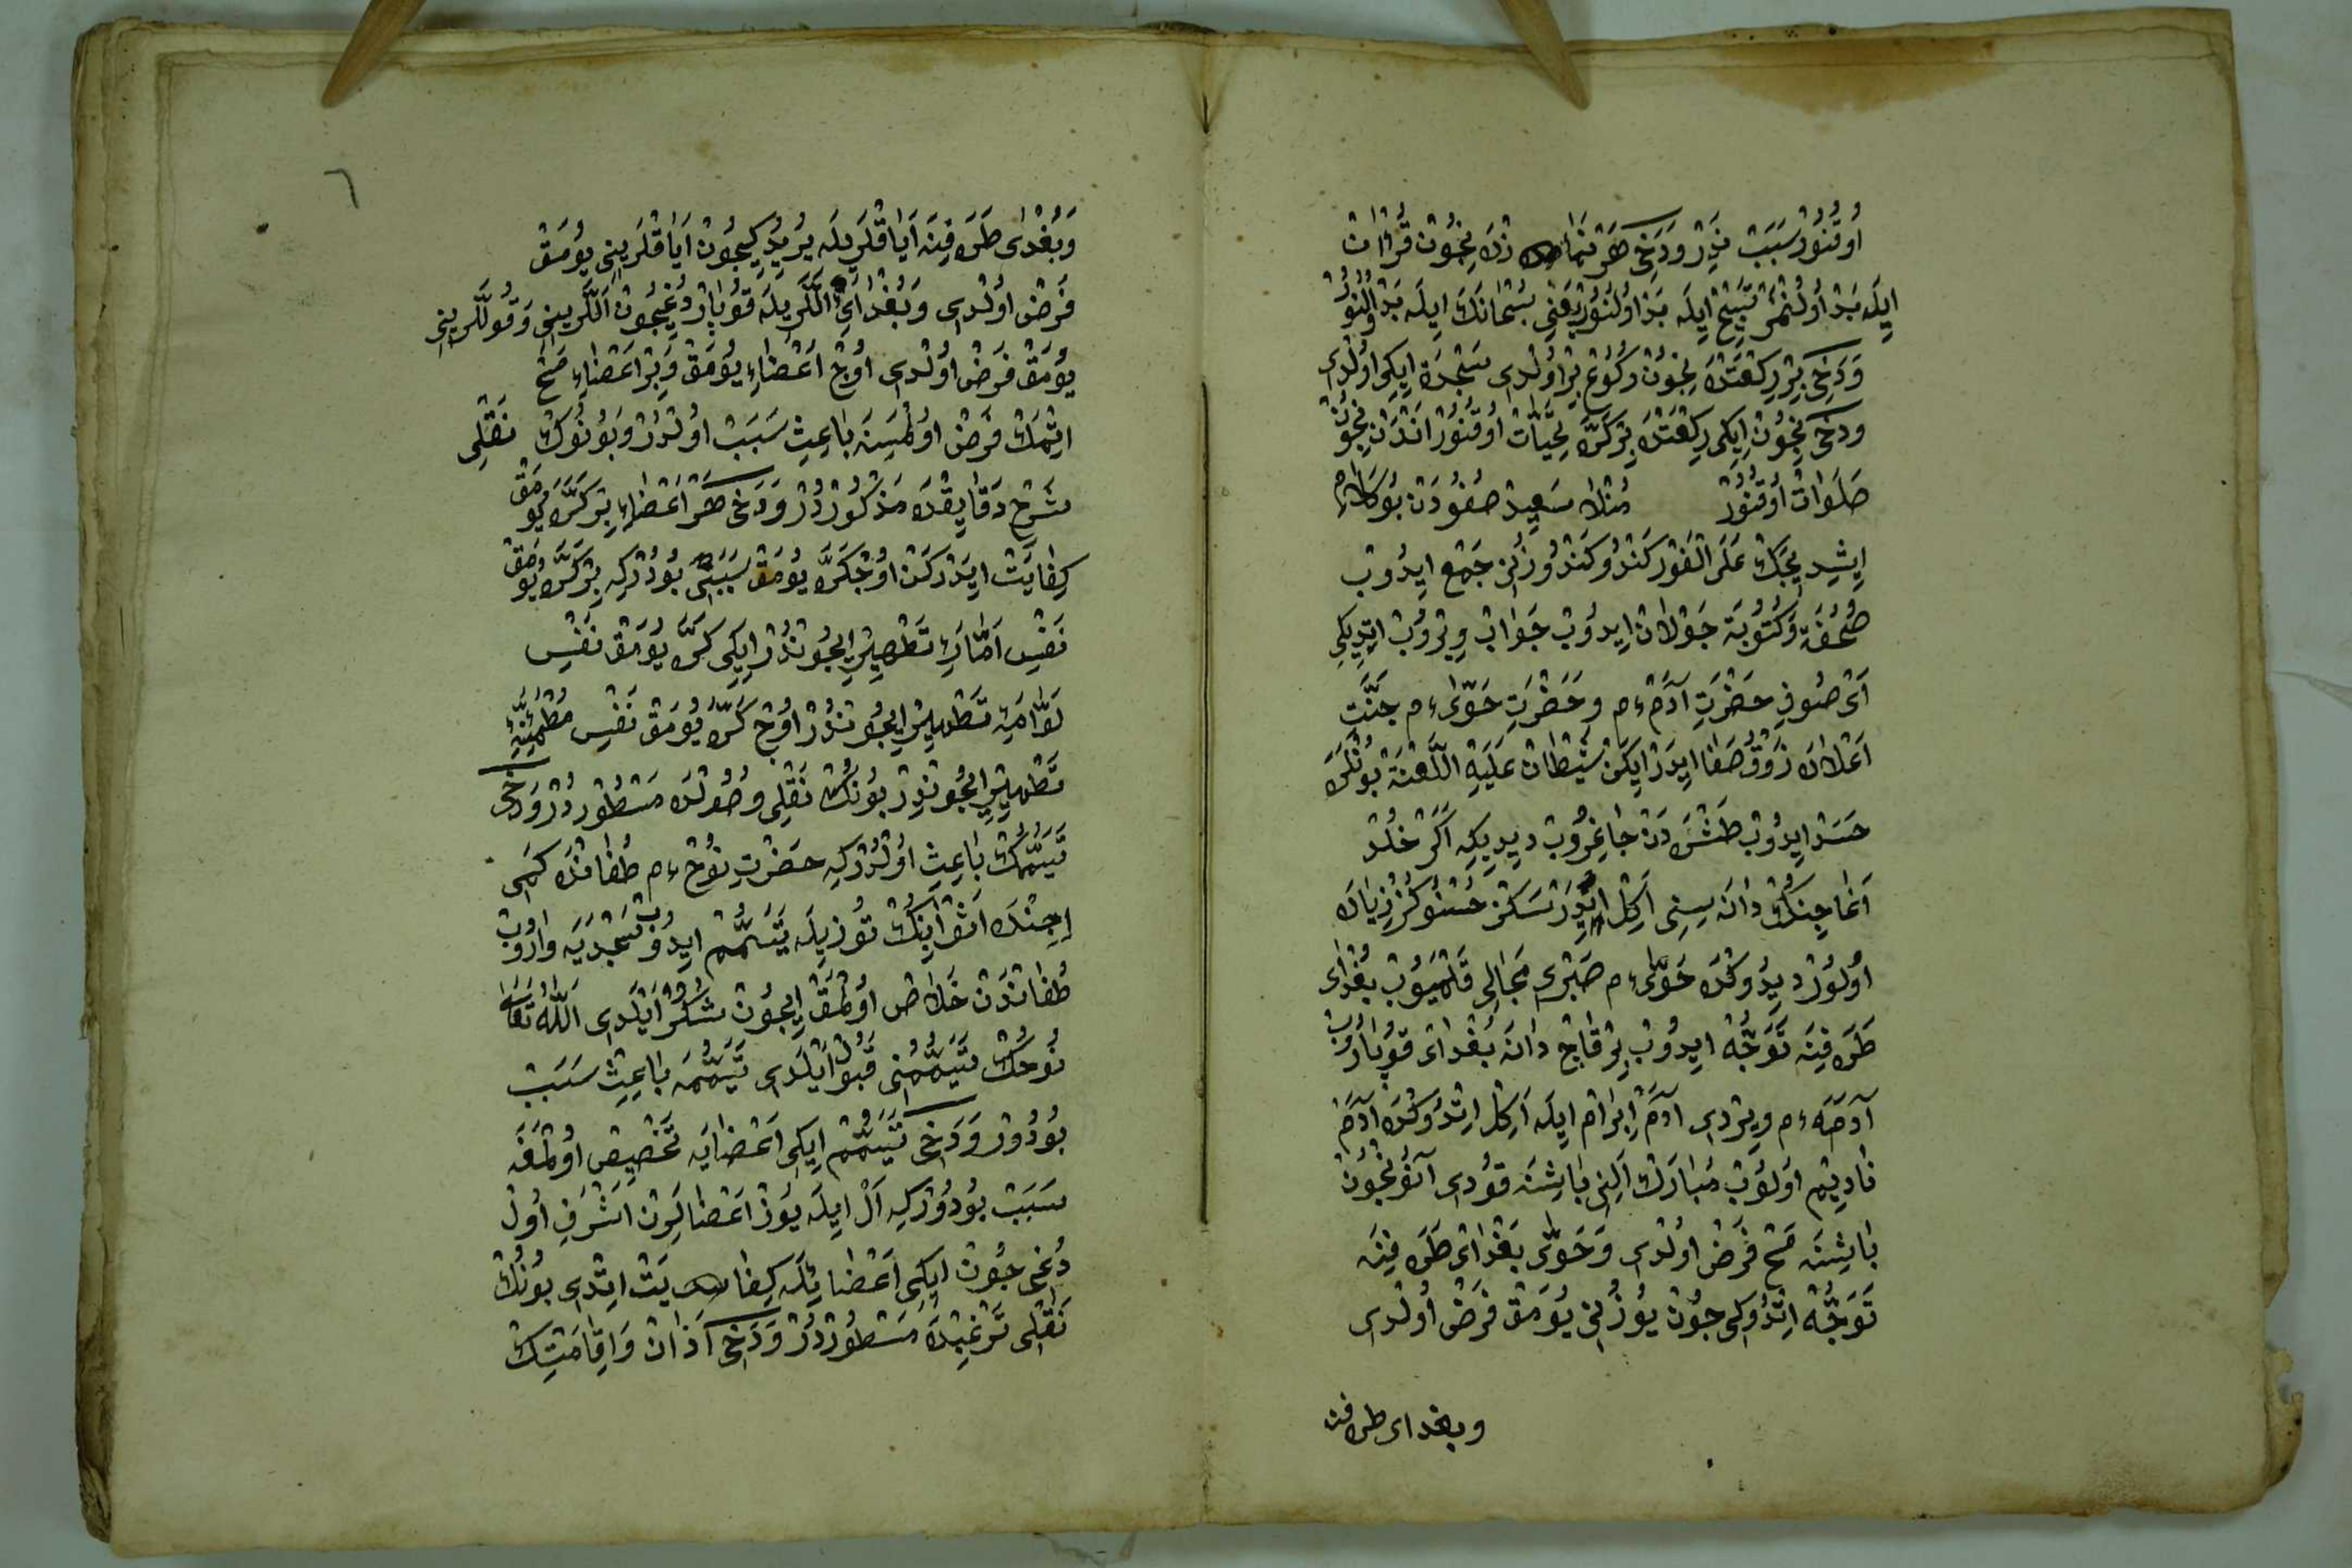 اوقنور سبب ندر ودخی هر نمازده نیچون قرائت
ایله بد اولنمز تسبیح ایله بد اولنور یعنی سبحانك ایله بد اولنور
ودخی بر ركعتده نیچون ركوع بر اولدی سجده ایكی اولدی
ودخی نیچون ایكی ركعتده بر كره تحیات اوقنور اندن نیچون
صلوات اوقنور منلا سعید صفودن بو كلام
ایشدیجك علی الفور كندو كندوزنی جمع ایدوب
صحفه وكتوبه جولان ایدوب جواب ویروب ایتدیكی
ای صوفی حضرت آدم ءم وحضرت حوّی ءم جنّت
اعلاده ذوق وصفا ایدر ایكن شیطان علیه اللعنة بونلره
حسد ایدوب طشره دن چاغروب دیدیكه اكر خلد
اغاجنك دانه سنی اكل ایدرسكز حسنوكز زیاده
اولور دیدوكده حوّی ءم صبری مجالی قلمیوب بغدای
طرفینه توجّه ایدوب بر قاچ دانه بغدای قوپاروب
آدمه ءم ویردی آدم ابرام ایله اكل ایتدوكده آدم
نادیم اولوب مبارك الینی باشنه قودی آنوڭچون
باشنه مسح فرض اولدی وحوّی بغدای طرفینه
توجّه ایتدوكی چون یوزنی یومق فرض اولدی
وبغدای طرفنه
٦
وبغدای طرفینه ایاقلریله یریدیكیچون ایاقلرینی یومق
فرض اولدی وبغدایی اللریله قوپاردغیچون اللرینی وقوللرینی
یومق فرض اولدی اوچ اعضاء یومق وبر اعضاء مسح
ایتمك فرض اولمسنه باعث سبب اولدر وبونوك نقلی
شرح دقایقده مذكوردر ودخی هر اعضاء بر كره یومق
كفایت ایدركن اوچ كره یومق سببی بودركه بر كره یومق
نفس امّاره تطهیر ایچوندر ایكی كره یومق نفس
لوّامه تطهیر ایچوندر اوچ كره یومق نفس مطمئنّه
تطهیر ایچوندر بونك نقلی وصولده مسطوردر ودخی
تیممك باعث اولدركه حضرت نوح ءم طفانده كمی
ایچنده آتڭ توزیله تیمّم ایدوب سجدیه واروب
طفاندن خلاص اولمق ایچون شكر ایلدی الله تعالی
نوحك تیمّمنی قبول ایلدی تیمّمه باعث سبب
بودور ودخی تیمّم ایكی اعضایه تخصیص اولمغه
سبب بودوركه ال ایله یوز اعضالرن اشرف اول
دغی چون ایكی اعضائله كفایت ایتدی بونك
نقلی ترغیبده مسطوردر ودخی آذان واقامتك